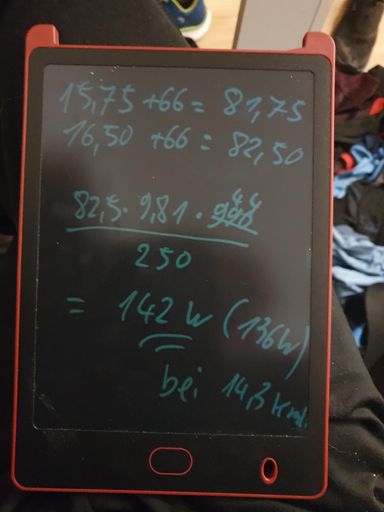 15,75 + 66 = 81,75
16,50 + 66 = 82,50
82,5 · 9,81 · 44
250
= 142 W (136W)
bei 14,3